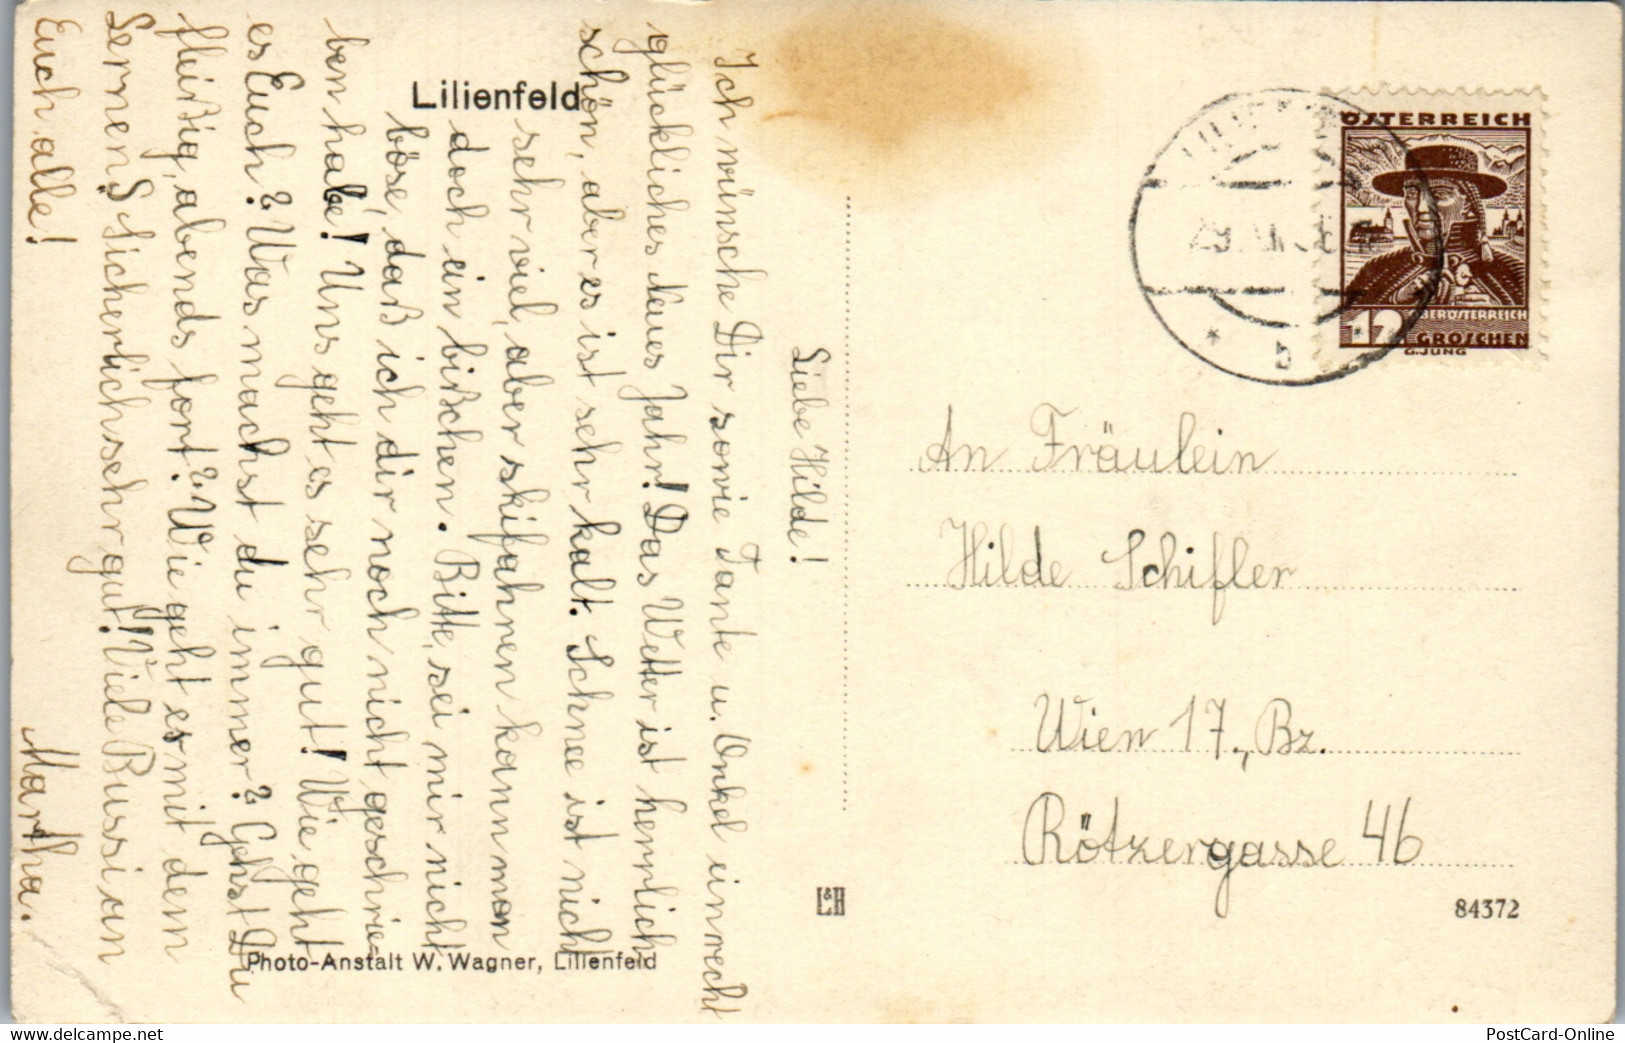 Lilienfeld
Liebe Hilde!
Ich wünsche Dir sowie Tante u. Onkel ein recht
glückliches Neues Jahr! Das Wetter ist herrlich
schön, aber es ist sehr kalt. Schnee ist nicht
sehr viel, aber skifahren kann man
doch ein bißchen. Bitte, sei mir nicht
böse, daß ich dir noch nicht geschrie-
ben habe! Uns geht es sehr gut! Wie geht
es Euch? Was machst du immer? Gehst Du
fleißig, abends fort? Wie geht es mit dem
Lernen? Sicherlich sehr gut! Viele Bussi an
Euch alle!
Martha.
Photo-Anstalt W. Wagner, Lilienfeld
L&H
ÖSTERREICH
12
OBERÖSTERREICH
GROSCHEN
G. JUNG
b
An Fräulein
Hilde Schifler
Wien 17., Bz.
Rötzergasse 46
84372
www.delcampe.net
PostCard-Online